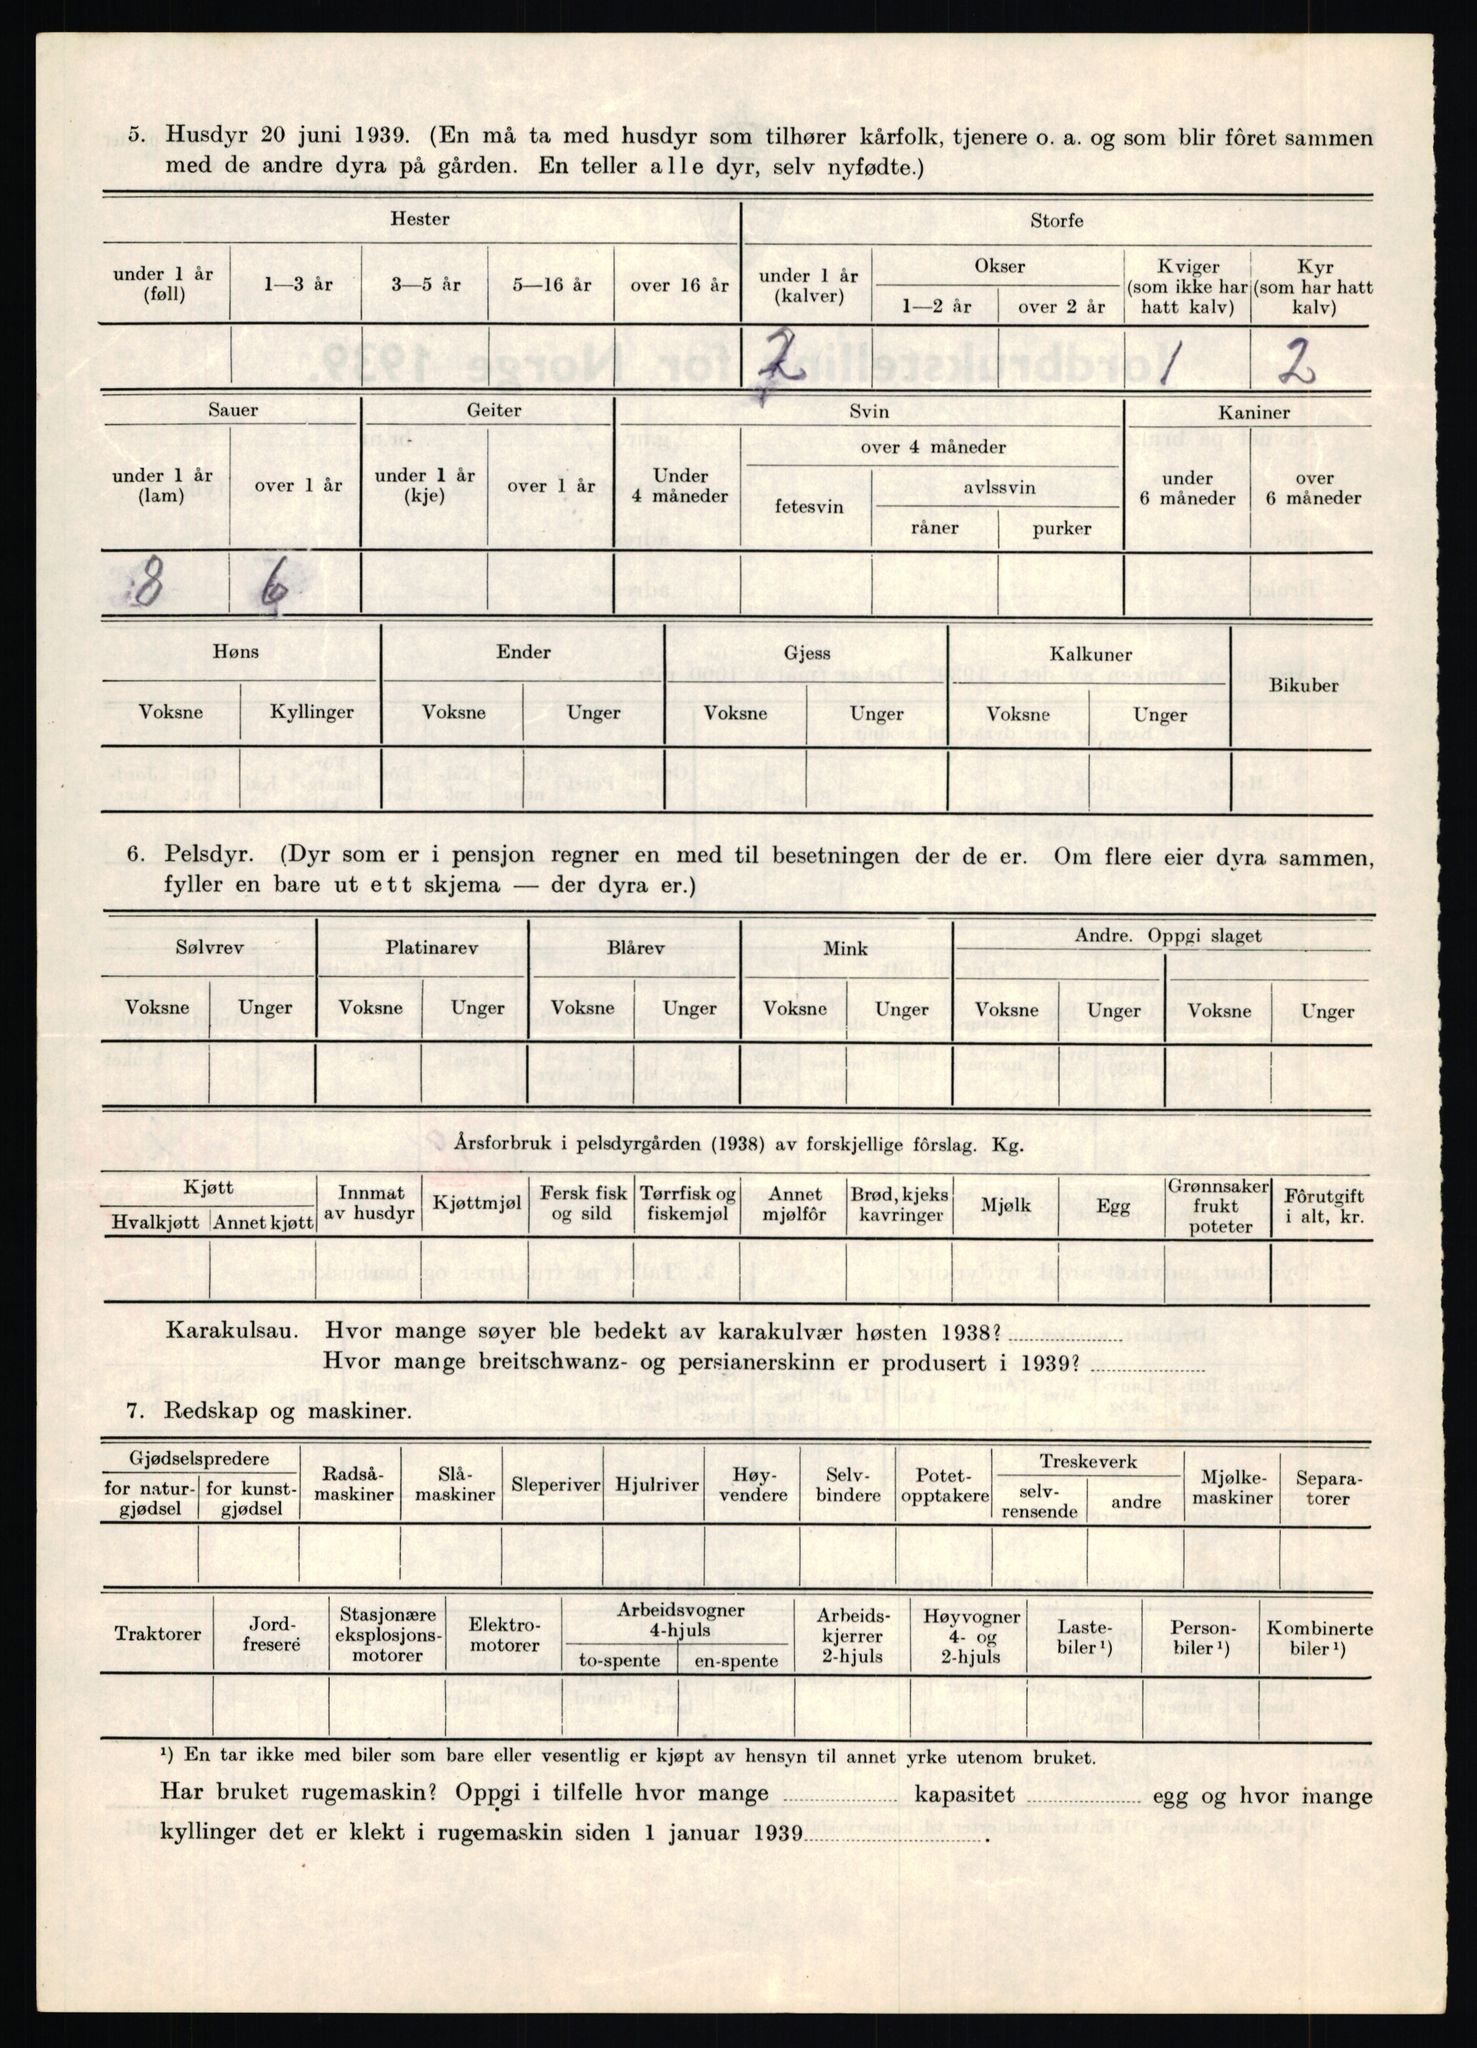 5. Husdyr 20 juni 1939. (En må ta med husdyr som tilhører kårfolk, tjenere o. a. og som blir fôret sammen
med de andre dyra på gården. En teller alle dyr, selv nyfødte.)
Hester Storfe
under 1 år (føll) 1—3 år 3—5 år 5—16 år over 16 år under 1 år (kalver) Okser 1—2 år over 2 år Kviger (som ikke har hatt kalv) Kyr (som har hatt kalv)
2 1 2
Sauer Geiter Svin Kaniner
under 1 år (lam) over 1 år under 1 år (kje) over 1 år Under 4 måneder over 4 måneder fetesvin avlssvin råner purker under 6 måneder over 6 måneder
8 6
Høns Ender Gjess Kalkuner Bikuber
Voksne Kyllinger Voksne Unger Voksne Unger Voksne Unger
6. Pelsdyr. (Dyr som er i pensjon regner en med til besetningen der de er. Om flere eier dyra sammen,
fyller en bare ut ett skjema — der dyra er.)
Sølvrev Platinarev Blårev Mink Andre. Oppgi slaget
Voksne Unger Voksne Unger Voksne Unger Voksne Unger Voksne Unger Voksne Unger
Årsforbruk i pelsdyrgården (1938) av forskjellige fôrslag. Kg.
Kjøtt Hvalkjøtt Annet kjøtt Innmat av husdyr Kjøttmjøl Fersk fisk og sild Tørrfisk og fiskemjøl Annet mjølfôr Brød, kjeks kavringer Mjølk Egg Grønnsaker frukt poteter Fôrutgift i alt, kr.
Karakulsau. Hvor mange søyer ble bedekt av karakulvær høsten 1938?
Hvor mange breitschwanz- og persianerskinn er produsert i 1939?
7. Redskap og maskiner.
Gjødselspredere for natur-gjødsel for kunst-gjødsel Radså-maskiner Slå-maskiner Sleperiver Hjulriver Høy-vendere Selv-bindere Potet-opptakere Treskeverk selv-rensende andre Mjølke-maskiner Separa-torer
Traktorer Jord-fresere Stasjonære eksplosjons-motorer Elektro-motorer Arbeidsvogner 4-hjuls to-spente en-spente Arbeids-kjerrer 2-hjuls Høyvogner 4- og 2-hjuls Laste-biler ¹) Person-biler ¹) Kombinerte biler ¹)
¹) En tar ikke med biler som bare eller vesentlig er kjøpt av hensyn til annet yrke utenom bruket.
Har bruket rugemaskin? Oppgi i tilfelle hvor mange kapasitet egg og hvor mange
kyllinger det er klekt i rugemaskin siden 1 januar 1939 .